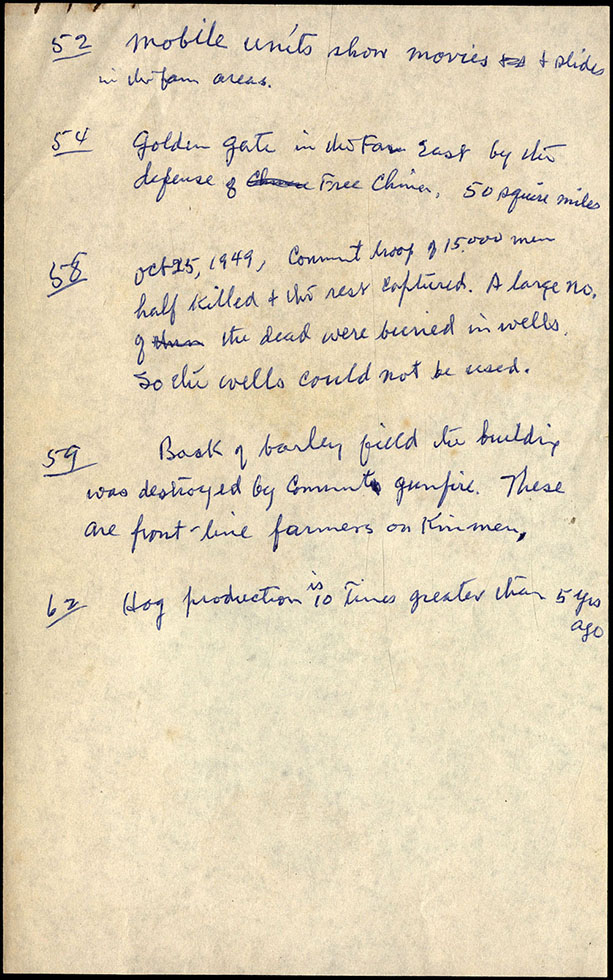 52 Mobile units show movies & slides
in the farm areas.
54 Golden Gate in the Far East by the
defense of Free China, 50 squire miles
58 Oct 25, 1949, Commut troop of 15,000 men
half killed & the rest captured. A large no.
of the dead were buried in wells.
So the wells could not be used.
59 Back of barley field the building
was destroyed by Commut gunfire. These
are front-line farmers on Kinmen,
62 Hog production is 10 times greater than 5 yrs
ago